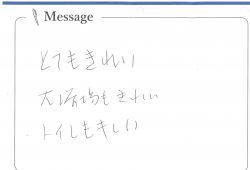 Message
とてもきれい
大浴場もきれい
トイレもきれい